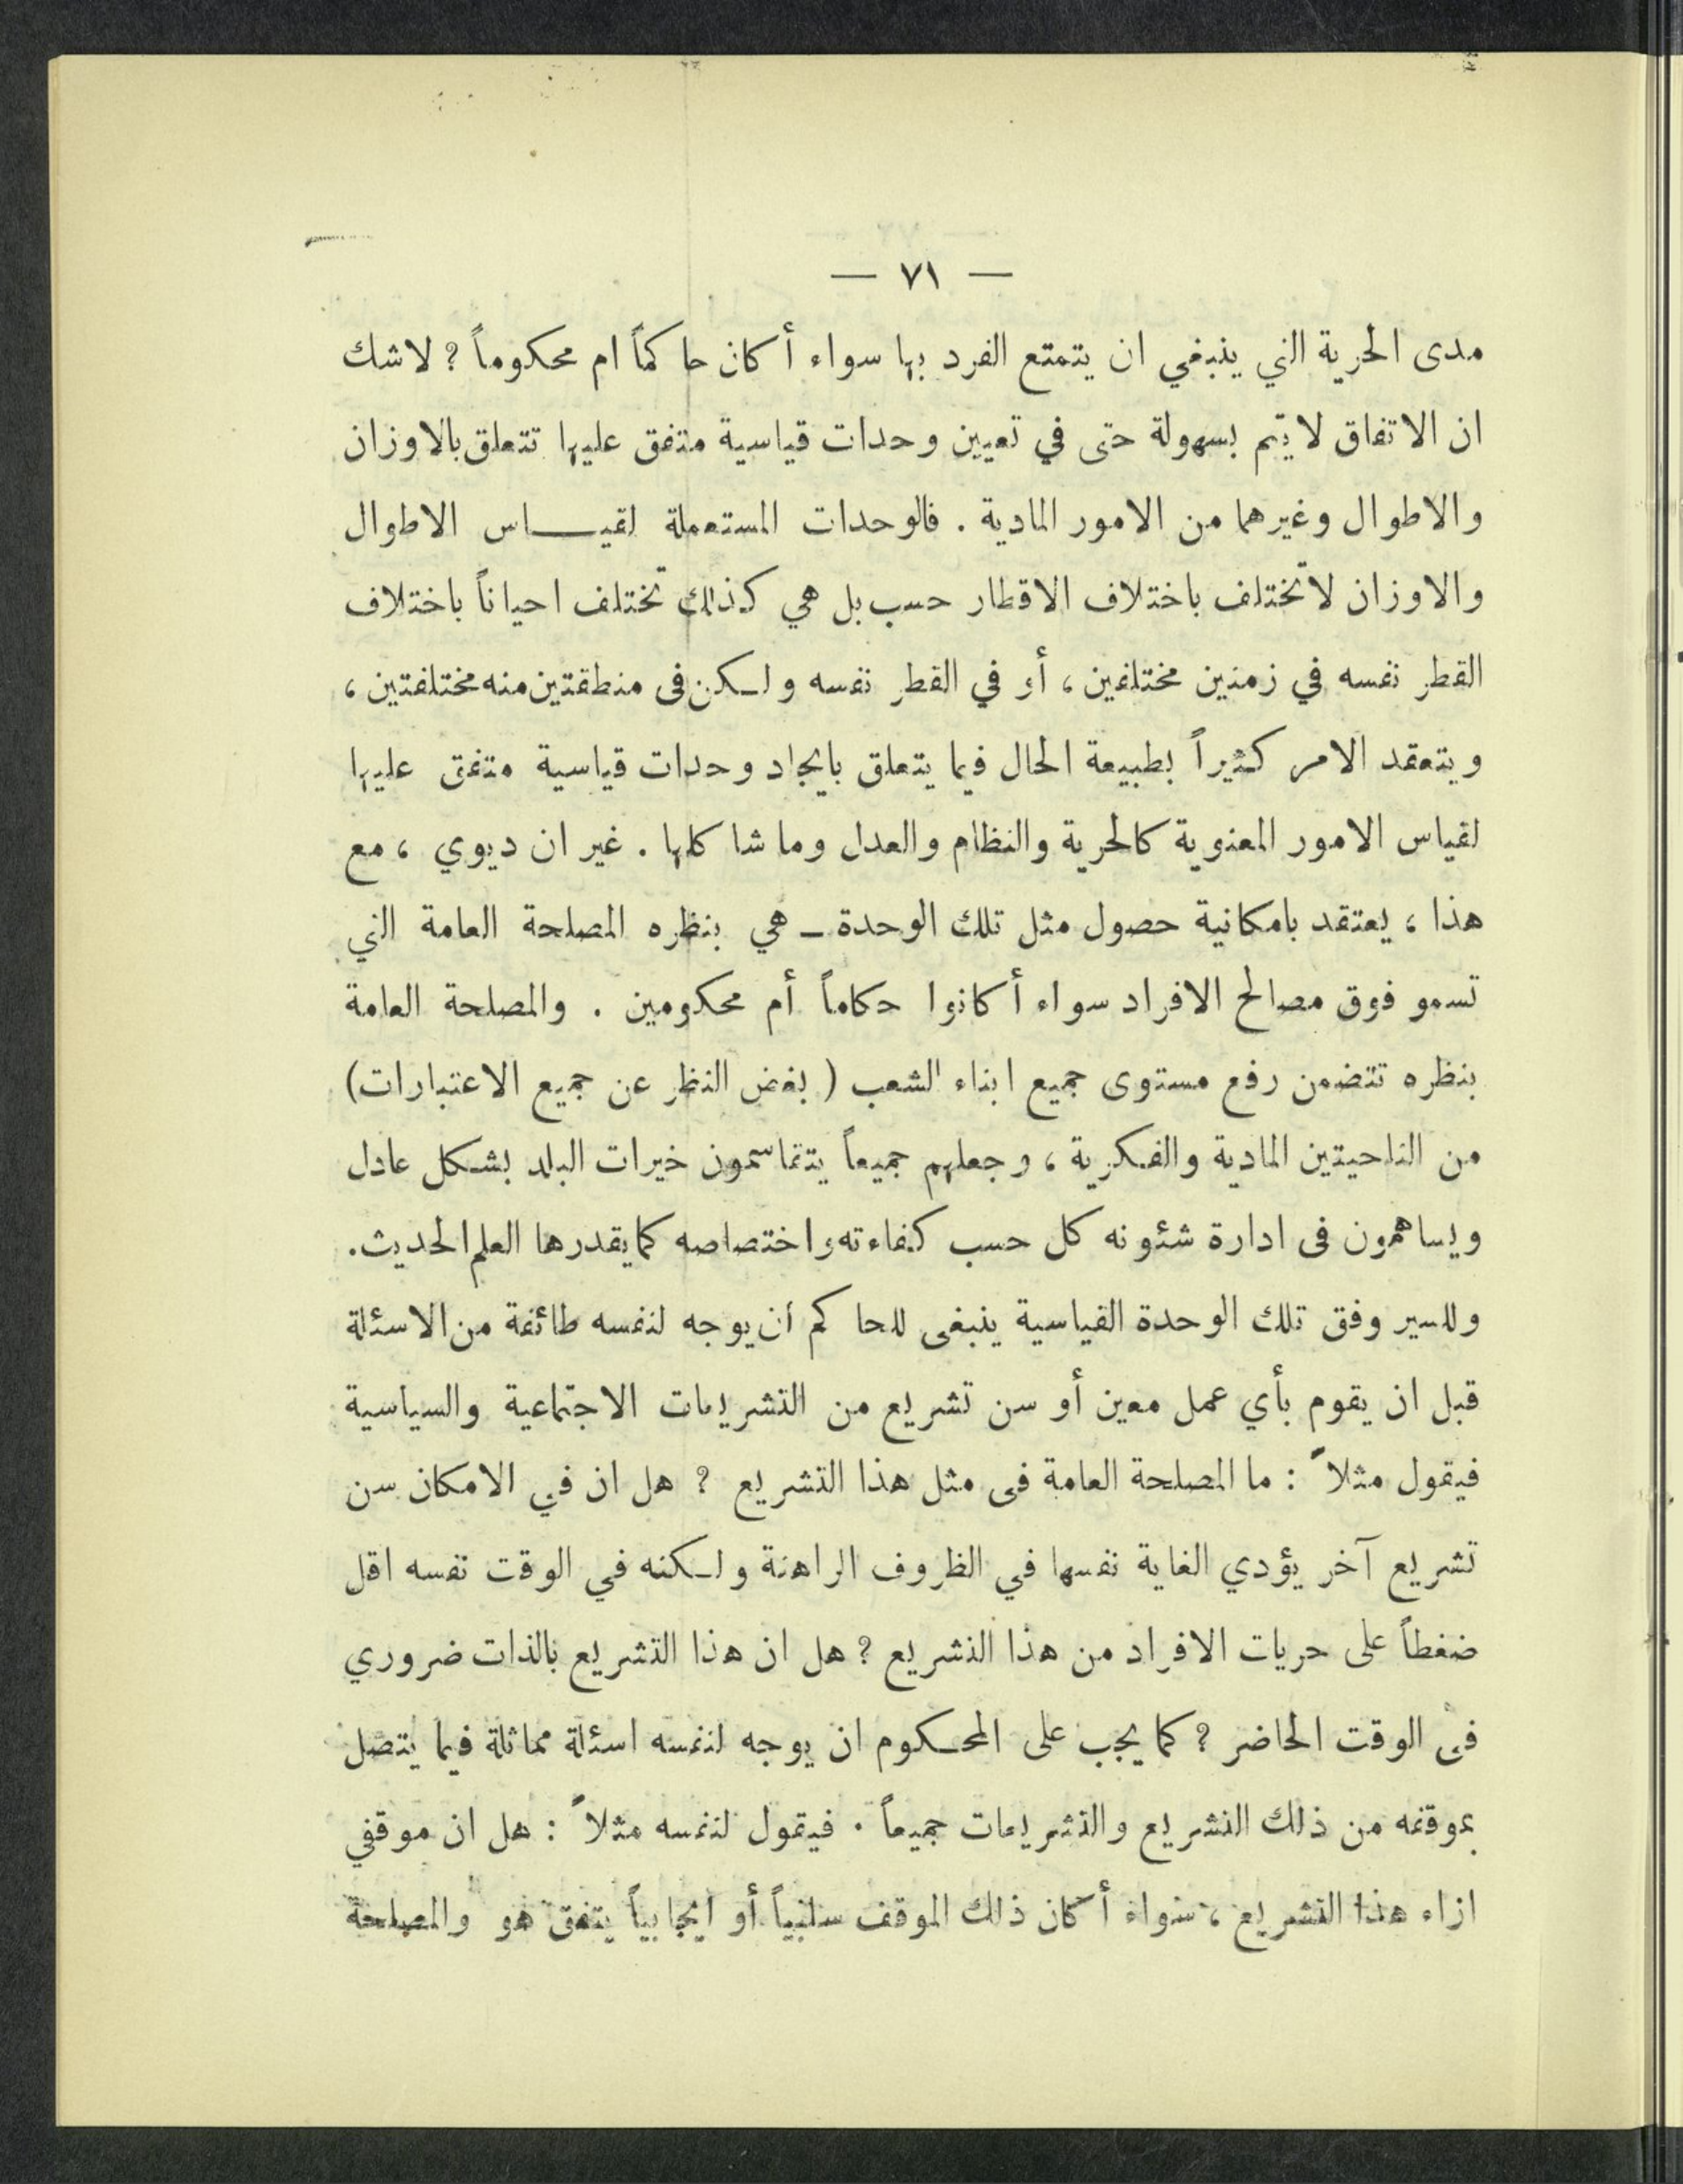 — ٧١ —
مدى الحرية التي ينبغي ان يتمتع الفرد بها سواء أكان حاكماً ام محكوماً ؟ لاشك
ان الاتفاق لا يتم بسهولة حتى في تعيين وحدات قياسية متفق عليها تتعلق بالاوزان
والاطوال وغيرهما من الامور المادية . فالوحدات المستعملة لقيـــاس الاطوال
والاوزان لاتختلف باختلاف الاقطار حسب بل هي كذلك تختلف احياناً باختلاف
القطر نفسه في زمنين مختلفين ، أو في القطر نفسه ولـكن فى منطقتين منه مختلفتين ،
ويتعقد الامر كثيراً بطبيعة الحال فيما يتعلق بايجاد وحدات قياسية متفق عليها
لقياس الامور المعنوية كالحرية والنظام والعدل وما شاكلها . غير ان ديوي ، مع
هذا ، يعتقد بامكانية حصول مثل تلك الوحدة ـ هي بنظره المصلحة العامة التي
تسمو فوق مصالح الافراد سواء أكانوا حكاماً أم محكومين . والمصلحة العامة
بنظره تتضمن رفع مستوى جميع ابناء الشعب ( بغض النظر عن جميع الاعتبارات)
من الناحيتين المادية والفكرية ، وجعلهم جميعاً يتقاسمون خيرات البلد بشكل عادل
ويساهمون فى ادارة شئونه كل حسب كفاءته واختصاصه كما يقدرها العلم الحديث.
وللسير وفق تلك الوحدة القياسية ينبغى للحاكم أن يوجه لنفسه طائفة من الاسئلة
قبل ان يقوم بأي عمل معين أو سن تشريع من التشريعات الاجتماعية والسياسية
فيقول مثلاً : ما المصلحة العامة فى مثل هذا التشريع ؟ هل ان في الامكان سن
تشريع آخر يؤدي الغاية نفسها في الظروف الراهنة ولـكنه في الوقت نفسه اقل
ضغطاً على حريات الافراد من هذا التشريع ؟ هل ان هذا التشريع بالذات ضروري
فى الوقت الحاضر ؟ كما يجب على المحـكوم ان يوجه لنفسه اسئلة مماثلة فيما يتصل
بموقفه من ذلك التشريع والتشريعات جميعاً . فيقول لنفسه مثلاً : هل ان موقفي
ازاء هذا التشريع ، سواء أكان ذلك الموقف سلبياً أو ايجابياً يتفق هو والمصلحة